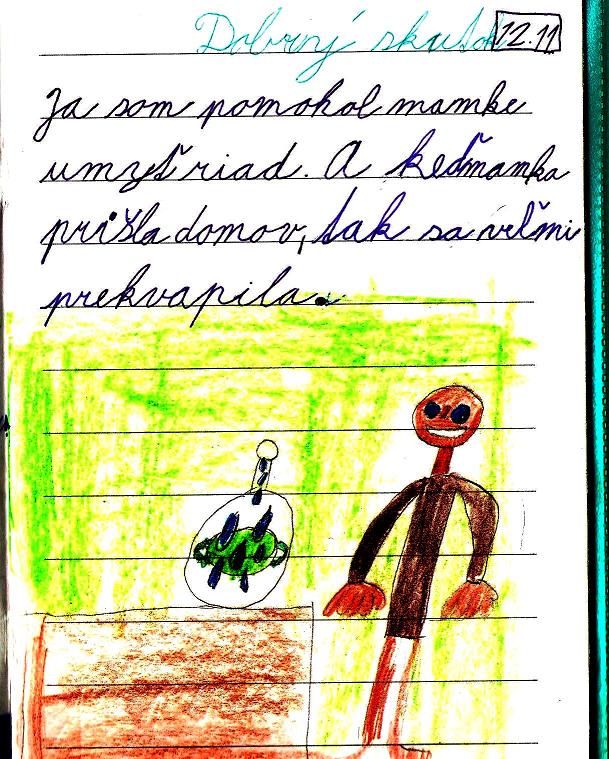 Dobrý skutok 12.11
Ja som pomohol mamke
umyť riad. A keď mamka
prišla domov, tak sa veľmi
prekvapila.